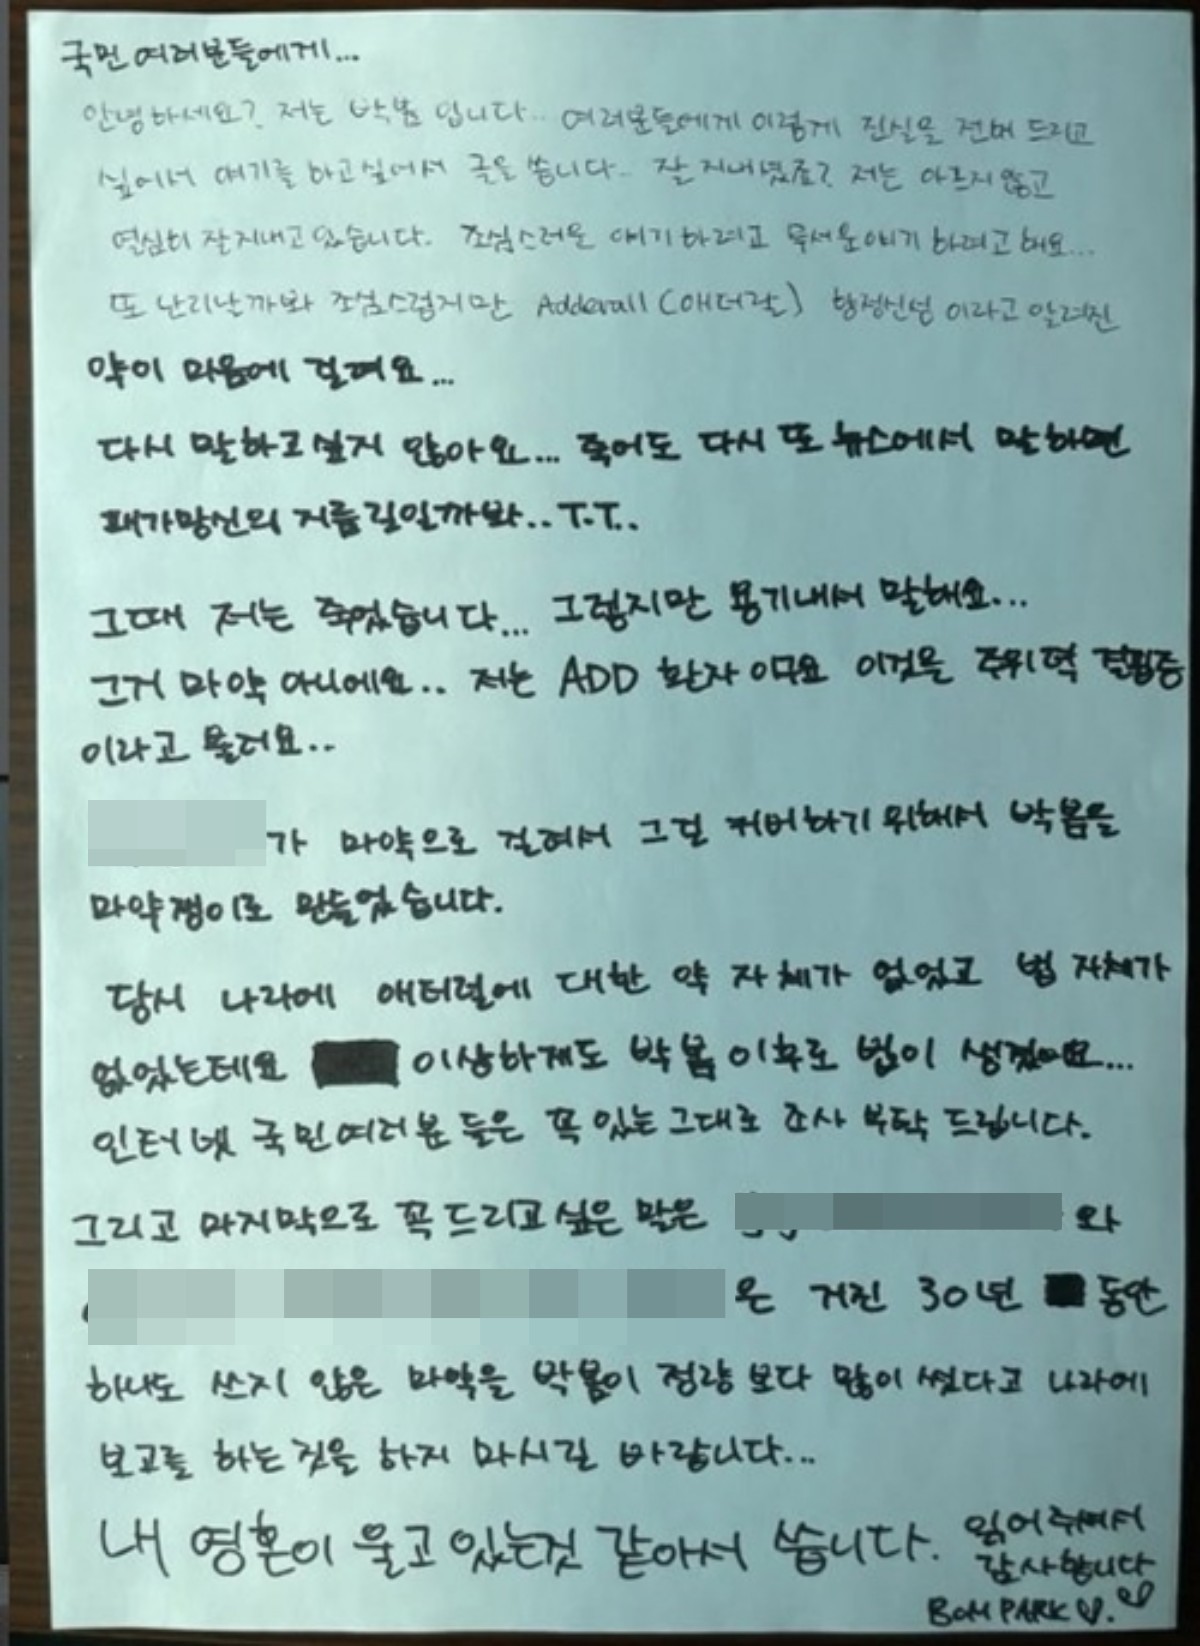 국민 여러분들에게...
안녕하세요? 저는 박봄 입니다.. 여러분들에게 이렇게 진실을 전해 드리고
싶어서 얘기를 하고싶어서 글을 씁니다.. 잘 지내셨죠? 저는 아프지 않고
열심히 잘지내고 있습니다. 조심스러운 얘기 하려고 무서운얘기 하려고 해요...
또 난리날까봐 조심스럽지만 Adderall (애더랄) 향정신성 이라고 알려진
약이 마음에 걸려요...
다시 말하고싶지 않아요... 죽어도 다시 또 뉴스에서 말하면
패가망신의 지름길일까봐..T.T..
그때 저는 죽었습니다... 그렇지만 용기내서 말해요...
그거 마약 아니에요.. 저는 ADD 환자 이구요 이것은 주위력 결핍증
이라고 불러요..
가 마약으로 걸려서 그걸 커버하기 위해서 박봄을
마약쟁이로 만들었습니다.
당시 나라에 애터럴에 대한 약 자체가 없었고 법 자체가
없었는데요 이상하게도 박봄 이후로 법이 생겼어요...
인터넷 국민여러분 들은 꼭 있는그대로 조사 부탁 드립니다.
그리고 마지막으로 꼭 드리고싶은 말은 와
은 거진 30년 동안
하나도 쓰지 않은 마약을 박봄이 정량 보다 많이 썼다고 나라에
보고를 하는 것을 하지 마시길 바랍니다...
내 영혼이 울고 있는것 같아서 씁니다. 읽어주셔서
감사합니다
BOM PARK♡.♡